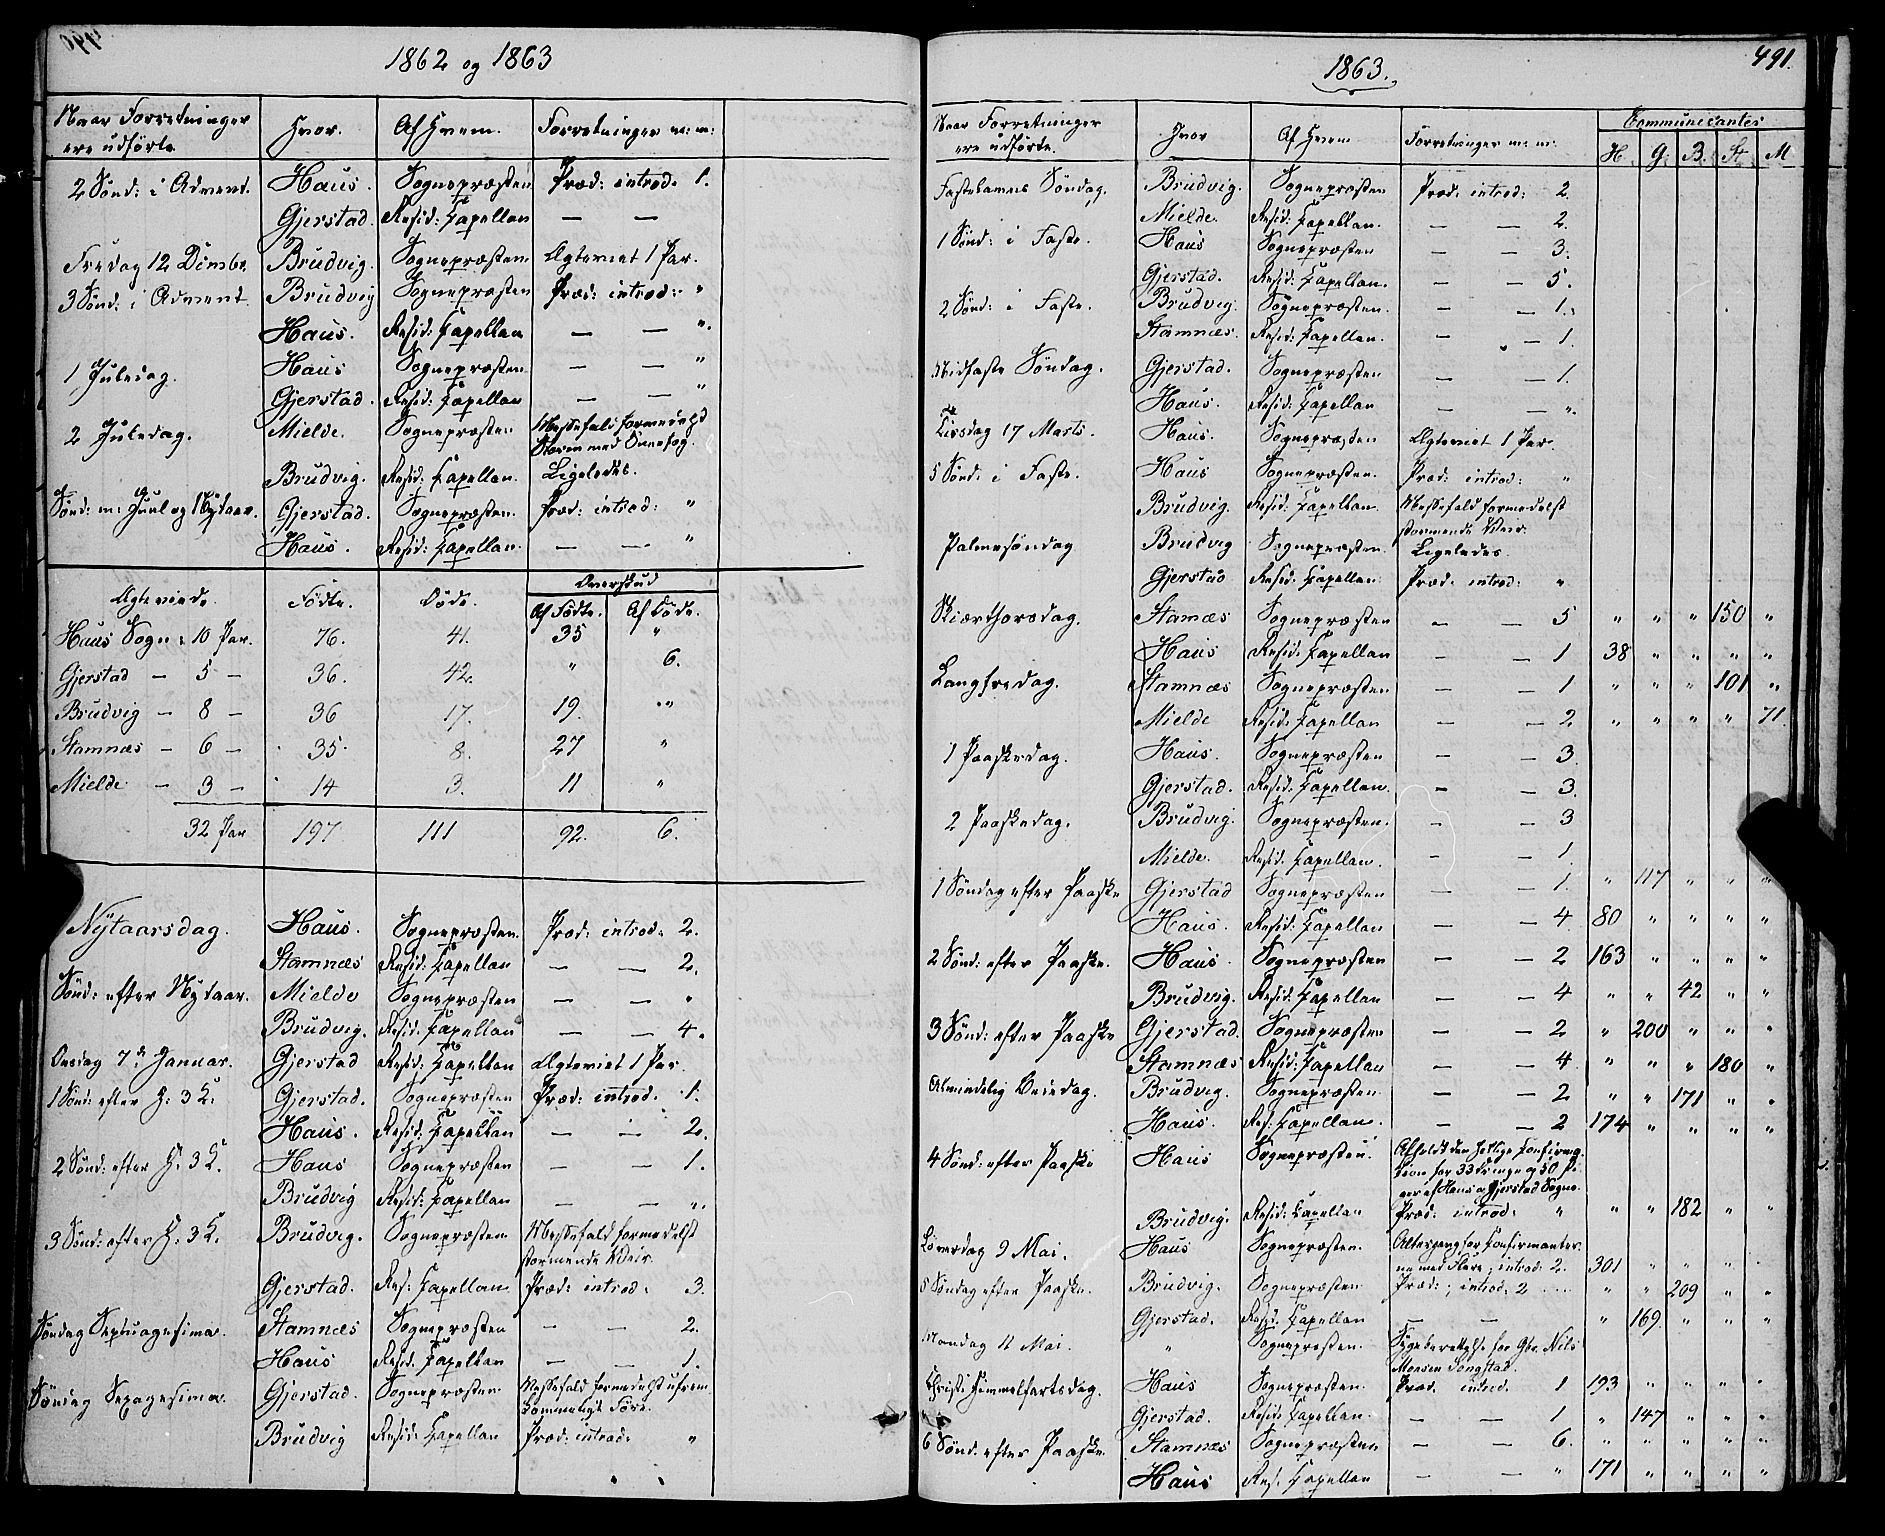 490
1862 og 1863
Naar Forretninger ere udførte. Hvor. Af Hvem. Forretninger m: m:
2 Sønd: i Advent. Haus. Sognepræsten Præd: introd: 1.
Gjerstad. Resid: Capellan — —
Fredag 12 Dcmbr. Brudvig. Sognepræsten. Ægteviet 1 Par.
3 Sønd: i Advent. Brudvig Sognepræsten Præd: introd: "
Haus. Resid: Capellan — — ".
1 Juledag. Haus Sognepræsten — — "
Gjerstad. Resid: Capellan — — "
2 Juledag. Mielde. Sognepræsten Messefald formedelst
Storm med Sneefog.
Brudvig. Resid: Capellan. Ligeledes.
Sønd: m: Juul og Nytaar. Gjerstad. Sognepræsten. Præd: introd: "
Haus. Resid: Capellan. — — "
Ægteviede. Fødte. Døde. Overskud
Af Fødte. Af Døde.
Haus Sogn: 10 Par. 76. 41. 35 "
Gjerstad — 5 — 36. 42. " 6.
Brudvig — 8 — 36 17. 19. "
Stamnæs — 6 — 35. 8. 27 "
Mielde — 3 — 14 3. 11 "
32 Par 197 111 92. 6.
Nÿtaarsdag. Haus. Sognepræsten. Præd: introd: 2.
Stamnæs Resid: Capellan — — 2.
Sønd: efter Nytaar. Mielde Sognepræsten — — "
Brudvig. Resid: Capellan — — 4.
Onsdag 7de Januar. Gjerstad Resid: Capellan Ægteviet 1 Par.
1 Sønd: efter H: 3 K: Gjerstad. Sognepræsten Præd: introd: 1.
Haus. Resid: Capellan — — 2.
2 Sønd: efter H: 3 K. Haus Sognepræsten — — 1.
Brudvig Resid: Capellan — — ".
3 Sønd: efter H: 3 K. Brudvig. Sognepræsten Messefald formedelst
stormende Veir.
Gjerstad. Res: Capellan Præd: introd: 3.
Søndag Septuagesima. Stamnæs Sognepræsten — — 2.
Haus Resid: Capellan — — 1.
Søndag Sexagesima. Gjerstad. Sognepræsten Messefald formedelst ufrem
kommeligt Føre.
Brudvig Resid: Capellan Præd: introd: "
491.
1863.
Naar Forretninger ere udførte. Hvor Af Hvem Forretninger m: m: Communicantes
H. G. B. St M
Fastelavns Søndag. Brudvig. Sognepræsten Præd: introd: 2.
Mielde. Resid: Capellan. — — 2.
1 Sønd: i Faste. Haus Sognepræsten — — 3.
Gjerstad. Resid: Capellan. — — 5.
2 Sønd: i Faste. Brudvig. Sognepræsten. — — 1.
Stamnæs. Resid: Capellan. — — 1.
Midfaste Søndag. Gjerstad. Sognepræsten — — 1.
Haus. Resid: Capellan — — ".
Tirsdag 17 Marts. Haus. Sognepræsten Ægteviet 1 Par.
5 Sønd: i Faste. Haus Sognepræsten. Præd: introd: "
Brudvig. Resid: Capellan. Messefald formedelst
stormende Veir.
Palmesøndag Brudvig Sognepræsten. Ligeledes.
Gjerstad Resid: Capellan Præd: introd: "
Skiærthorsdag. Stamæs Sognepræsten — — 5 " " " 150 "
Haus Resid: Capellan — — 1 38 " " " "
Langfredag. Stamnæs Sognepræsten — — 1 " " " 101 "
Mielde Resid: Capellan — — 2 " " " " 71.
1 Paaskedag. Haus. Sognepræsten — — 3.
Gjerstad. Resid: Capellan. — — 3.
2 Paaskedag. Brudvig. Sognepræsten. — — 3
Mielde. Resid: Capellan. — — 1.
1 Søndag efter Paaske Gjerstad Sognepræsten — — 1. " 117 " " "
Haus. Resid: Capellan — — 4 80 " " " "
2 Sønd: efter Paaske. Haus. Sognepræsten — — 2 163 " " " "
Brudvig. Resid: Capellan — — 4 " " 42 " "
3 Sønd: efter Paaske Gjerstad. Sognepræsten — — 2 " 200 " " "
Stamnæs Resid: Capellan — — 4 " " " 180 "
Almindelig Bededag. Brudvig. Sognepræsten — — 2 " " 171 " "
Haus. Res: Capellan. — — 2 174 " " " "
4 Sønd: efter Paaske Haus Sognepræsten. Afholdt den hellige Confirma-
tion for 33 Drenge og 50 Pi
ger af Haus og Gjerstad Sogne.
Brudvig. Resid: Capellan Præd: introd: " " " 182 " "
Løverdag 9 Mai. Haus Sognepræsten. Altergang for Confirmanter
ne med Flere; introd: 2. 301 " " " "
5 Søndag efter Paaske. Brudvig. Sognepræsten Præd:; introd: 2 " " 209 " "
Gjerstad. Resid: Capellan — — " 169 " " "
Mandag 11 Mai. " Sognepræsten. Sygeberettelse for Gbr. Nils
Monsen Songstad.
Christi Himmelfartsdag. Haus Sognepræsten. Præd. introd. 1 193 " " " "
Gjerstad. Resid: Capellan. — — 1 " 147 " " "
6 Sønd: efter Paaske. Stamnæs Sognepræsten — — 6. " " " " "
Haus Res: Capellan — — " 171 " " " "